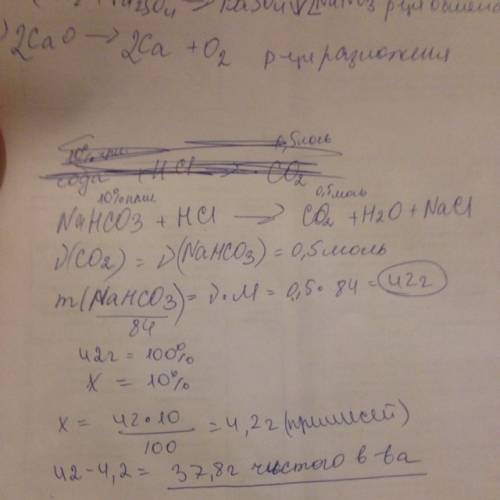 2SO4 → BaSO4↓ 2NaNO3 р-ция обмена
) 2CaO → 2Ca + O2 р-ция разложения
0,5 моль
сода + HCl → CO2
10% прим 0,5 моль
NaHCO3 + HCl → CO2 + H2O + NaCl
ν(CO2) = ν(NaHCO3) = 0,5 моль
m(NaHCO3) = ν·M = 0,5·84 = 42г
84
42г = 100%
x = 10%
x = 42·10 / 100 = 4,2г (примисей)
42-4,2 = 37,8г чистого в-ва